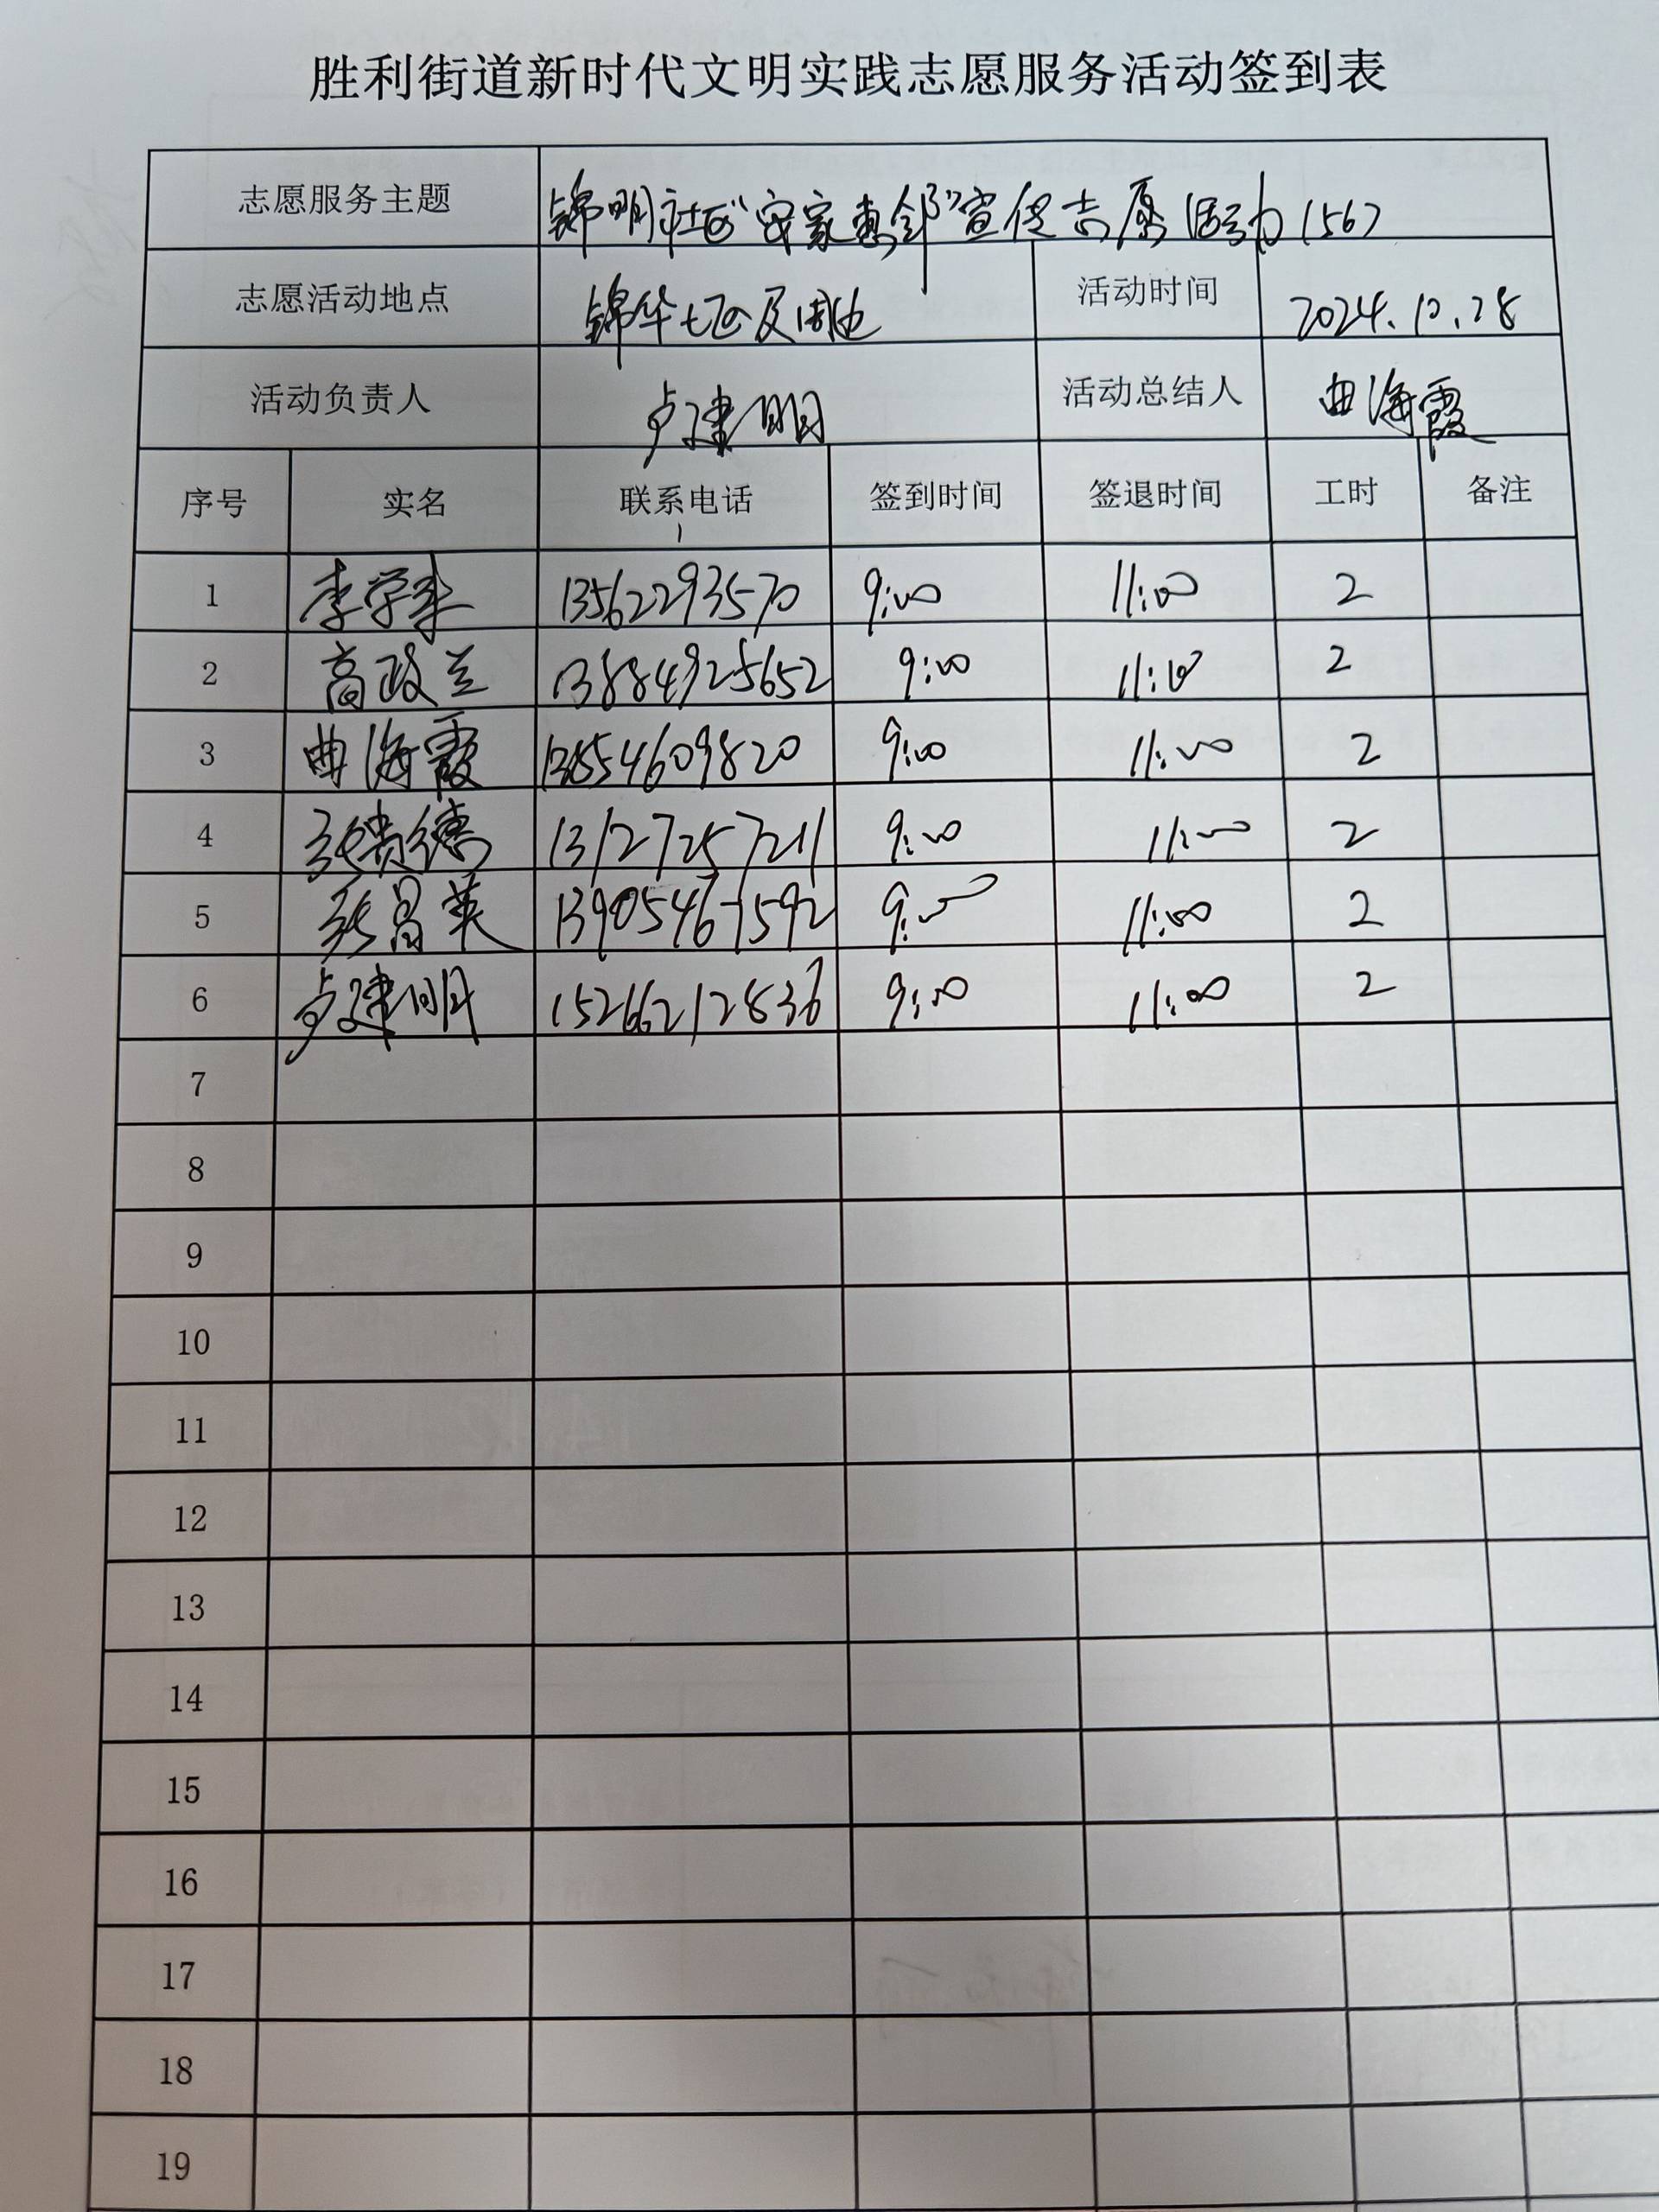 胜利街道新时代文明实践志愿服务活动签到表
志愿服务主题 锦明社区"安家惠邻"宣传志愿活动1567
志愿活动地点 锦华七区及周边 活动时间 2024.12.28
活动负责人 卢建明 活动总结人 曲海霞
序号 实名 联系电话 签到时间 签退时间 工时 备注
1 李学来 13562293570 9:00 11:00 2
2 高政兰 13884925652 9:00 11:00 2
3 曲海霞 13854609820 9:00 11:00 2
4 张贵德 13127257211 9:00 11:00 2
5 张昌英 13905461592 9:00 11:00 2
6 卢建明 15266212836 9:00 11:00 2
7
8
9
10
11
12
13
14
15
16
17
18
19